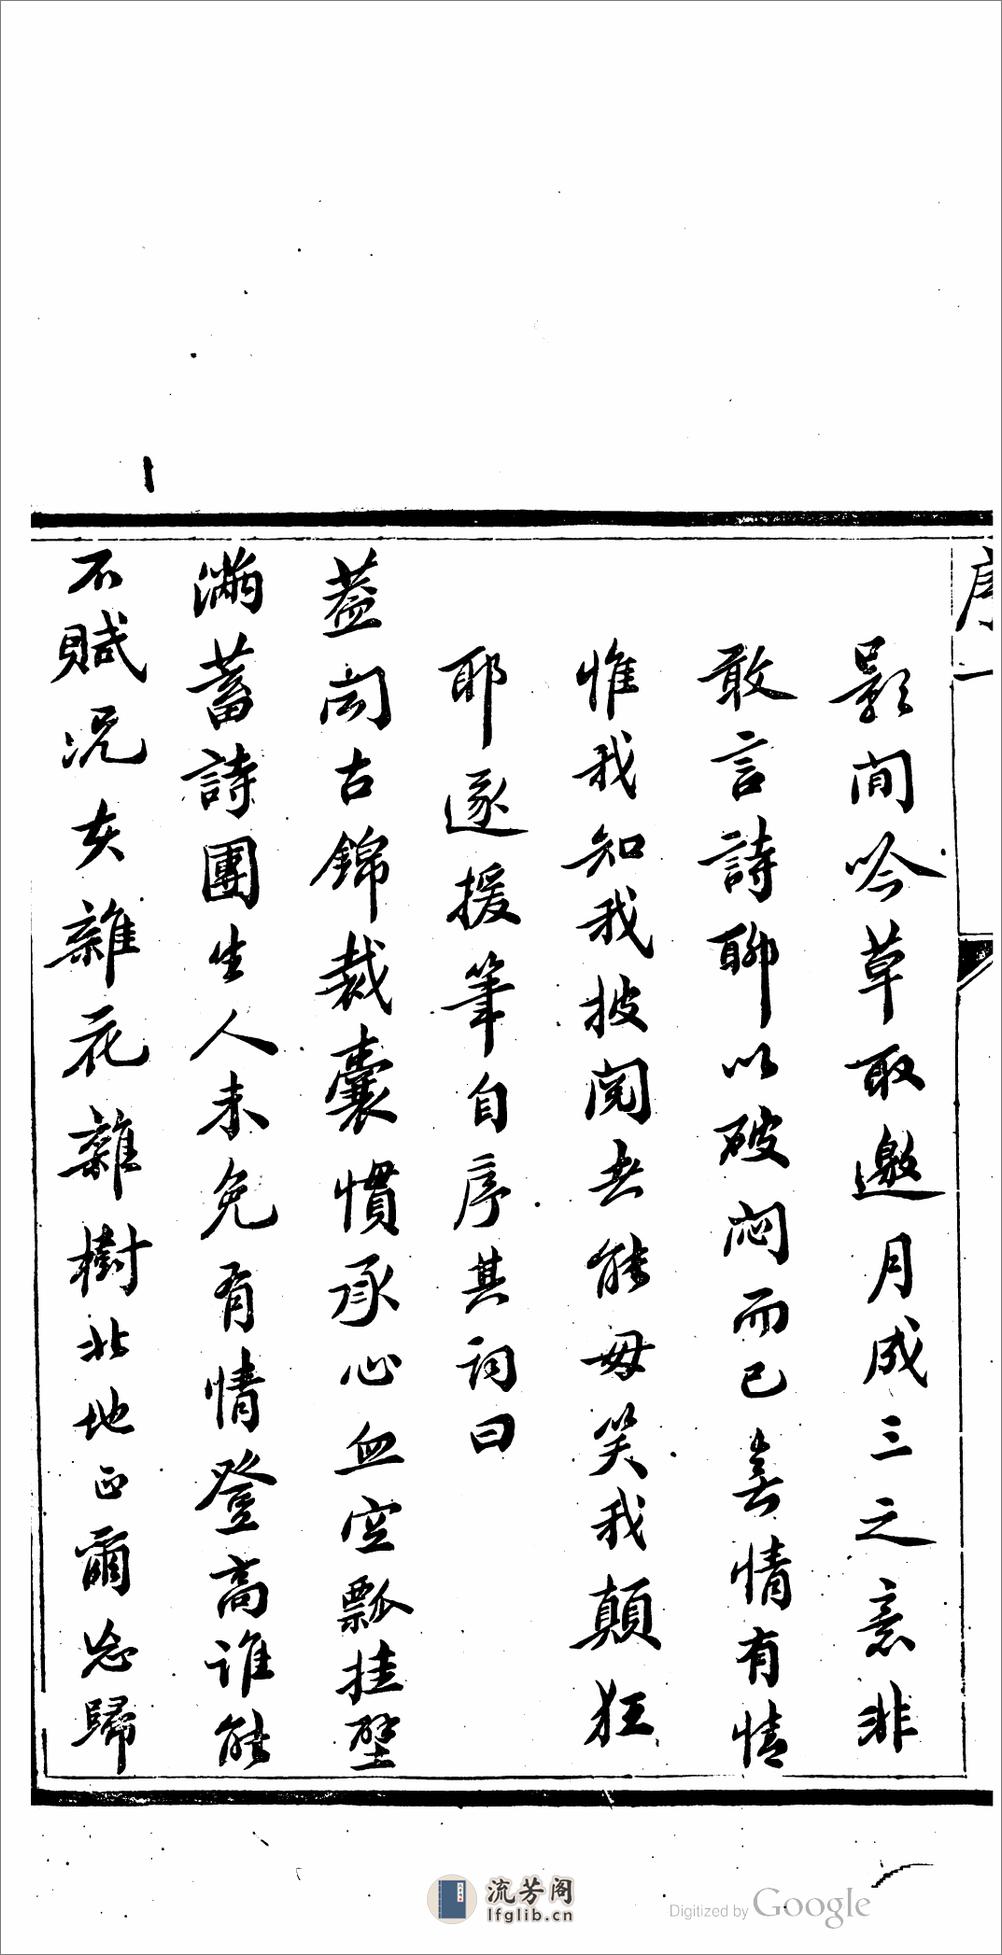 序一
影間吟草取邀月成三之意非
敢言詩聊以破悶而已無情有情
惟我知我披閱者能毋笑我顛狂
耶遂援筆自序其詞曰
蓋聞古錦裁囊慣承心血空瓢挂壁
滿蓄詩團生人未免有情登高誰能
不賦況夫雜花雜樹北地正爾忘歸
流芳阁
lfglib.cn
Digitized by Google